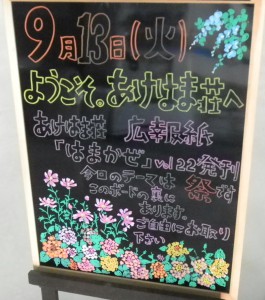 9月13日(火)
ようこそ。あけはま荘へ
あけはま荘 広報紙
「はまかぜ」vol.22発刊
今日のテーマは 祭です
このボードの裏に
あります。
ご自由にお取り
下さい